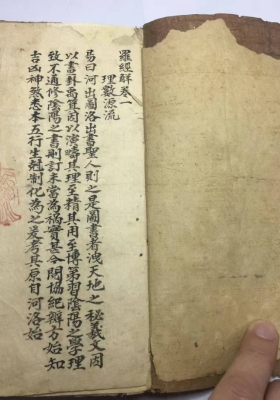 羅經解卷一
理數源流
易曰河出圖洛出書聖人則之是圖書者洩天地之秘羲文因
以書卦禹箕因以演疇其理至精其用至博第習陰陽之學理
致不通修陰陽之書則訂未當為禍實甚今閱協紀辯方始知
吉凶神煞悉本五行生尅制化為之爰考其原自河洛始